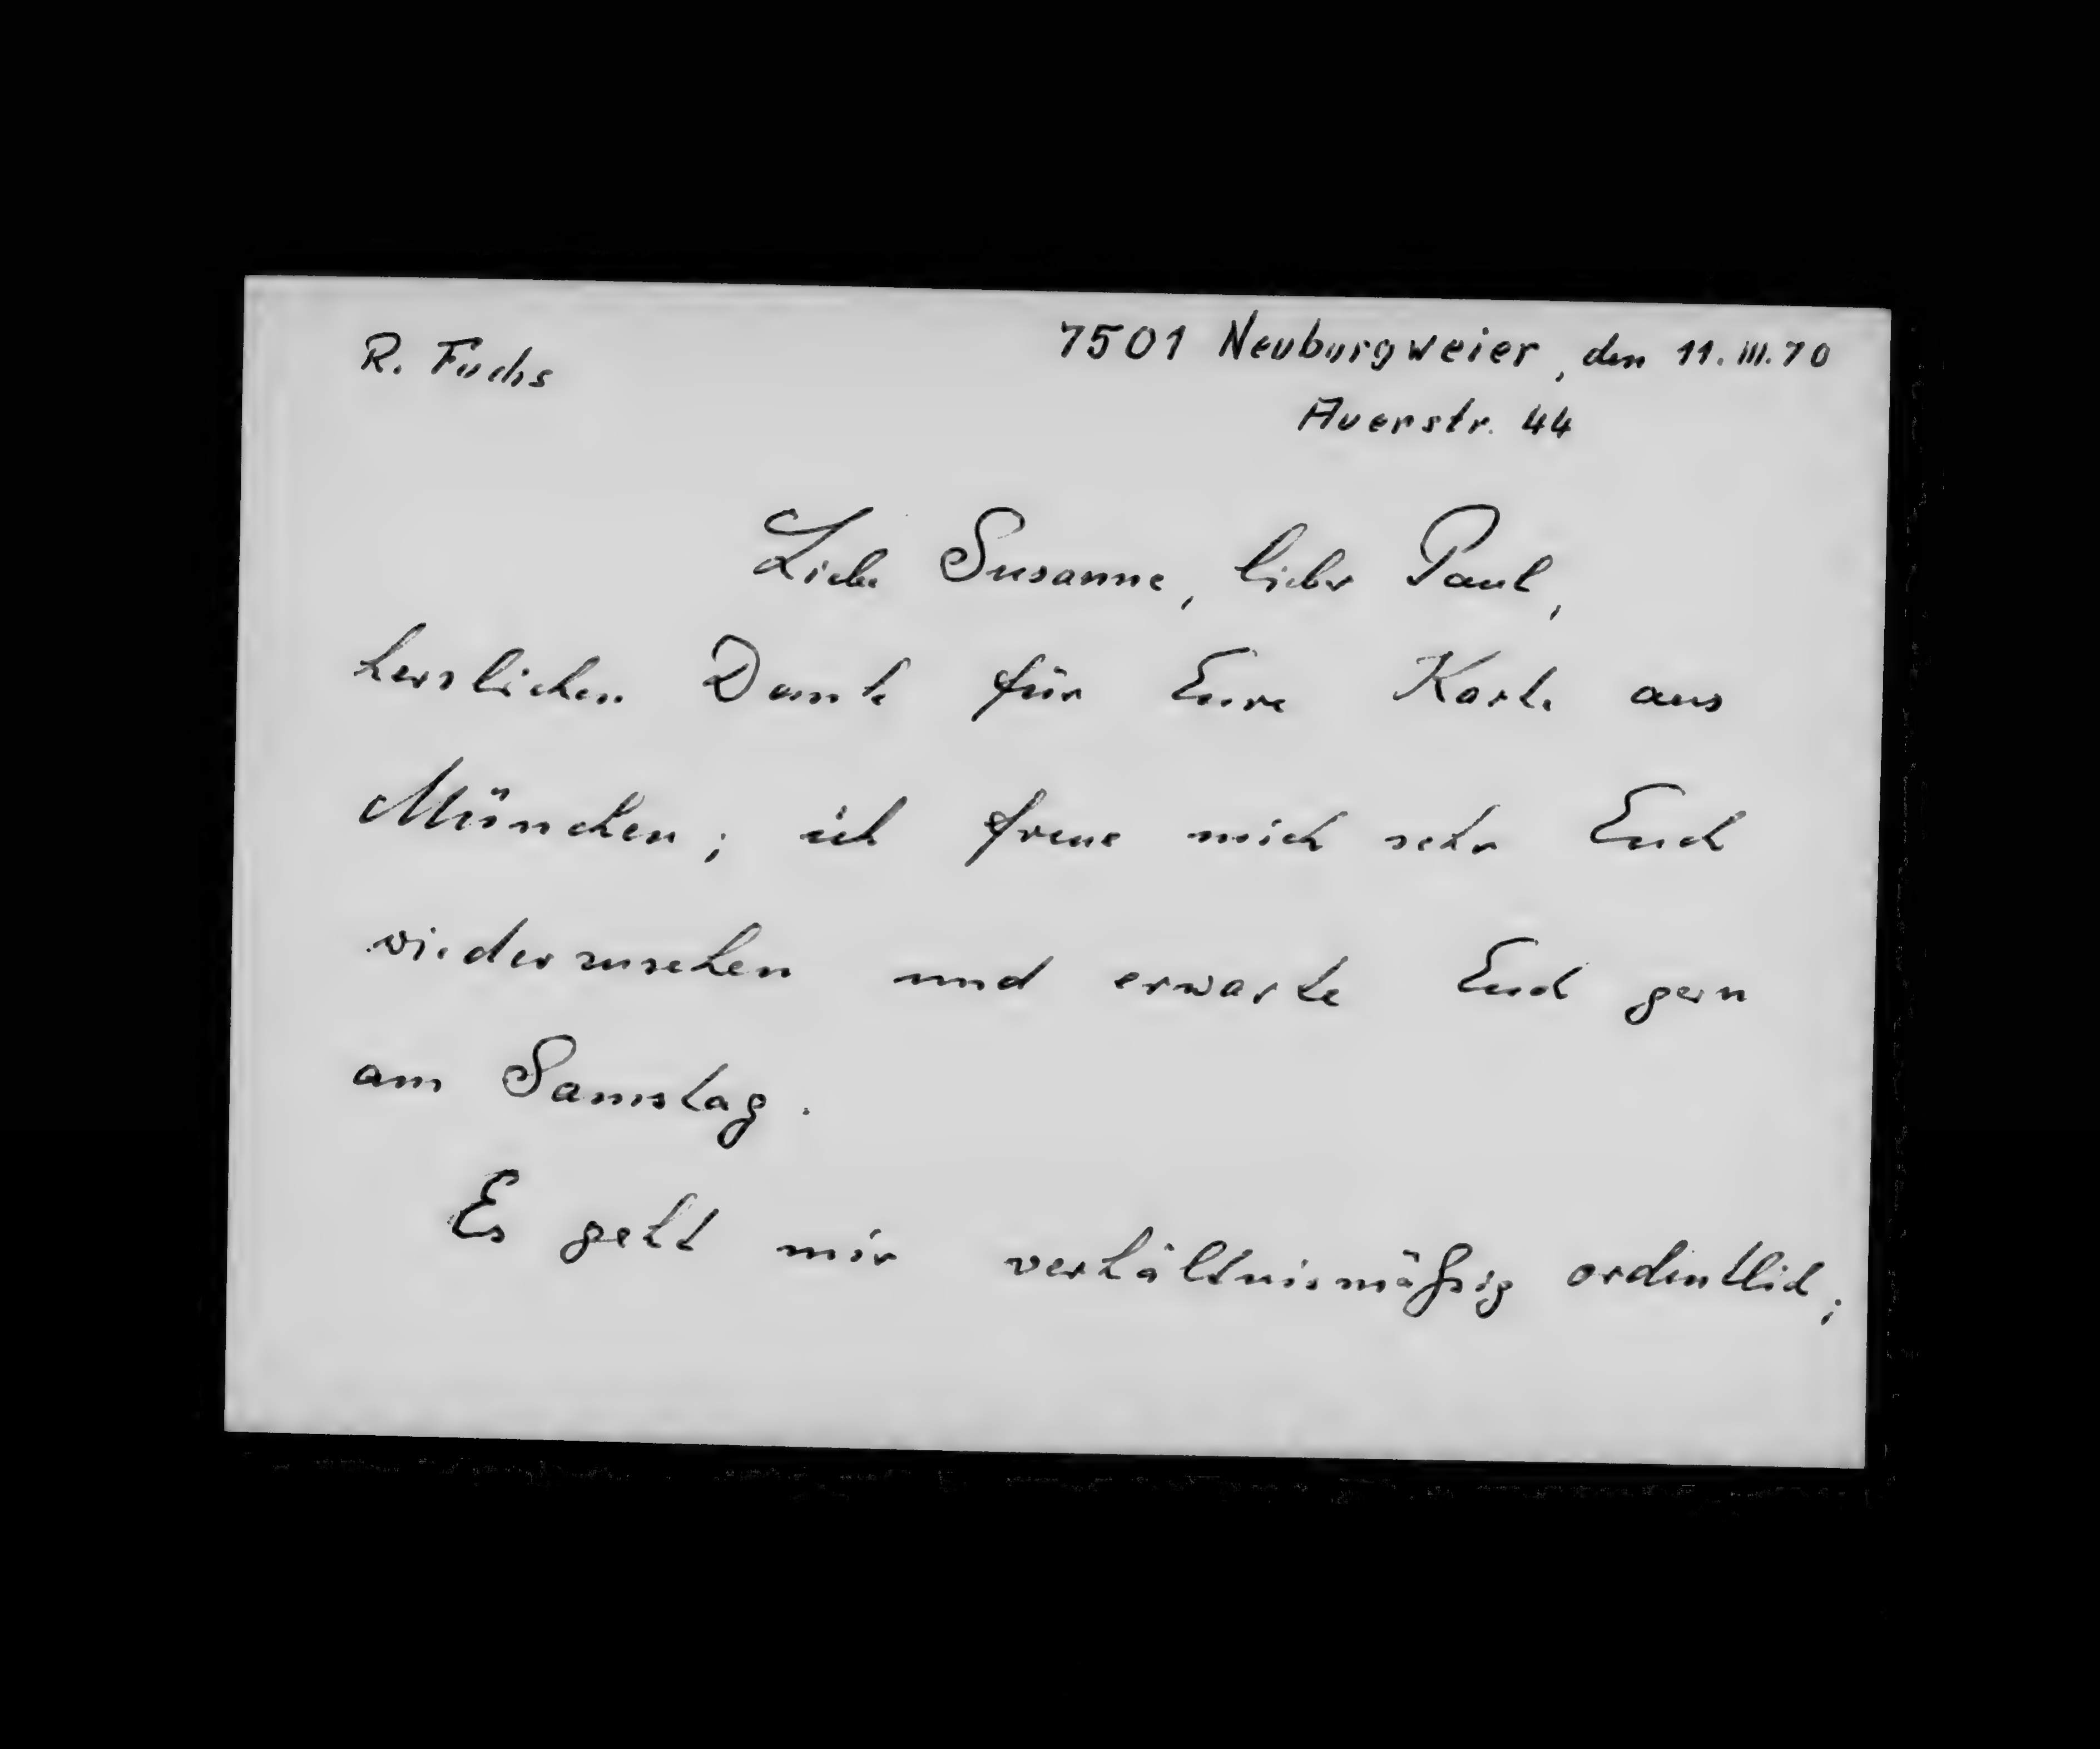 R. Fuchs
7501 Neuburgweier, den 11.III.70
Auerstr. 44
Liebe Susanne, lieber Paul,
herzlichen Dank für Eure Karte aus
München; ich freue mich sehr Euch
wiederzusehen und erwarte Euch gern
am Samstag.
Es geht mir verhältnismäßig ordentlich;